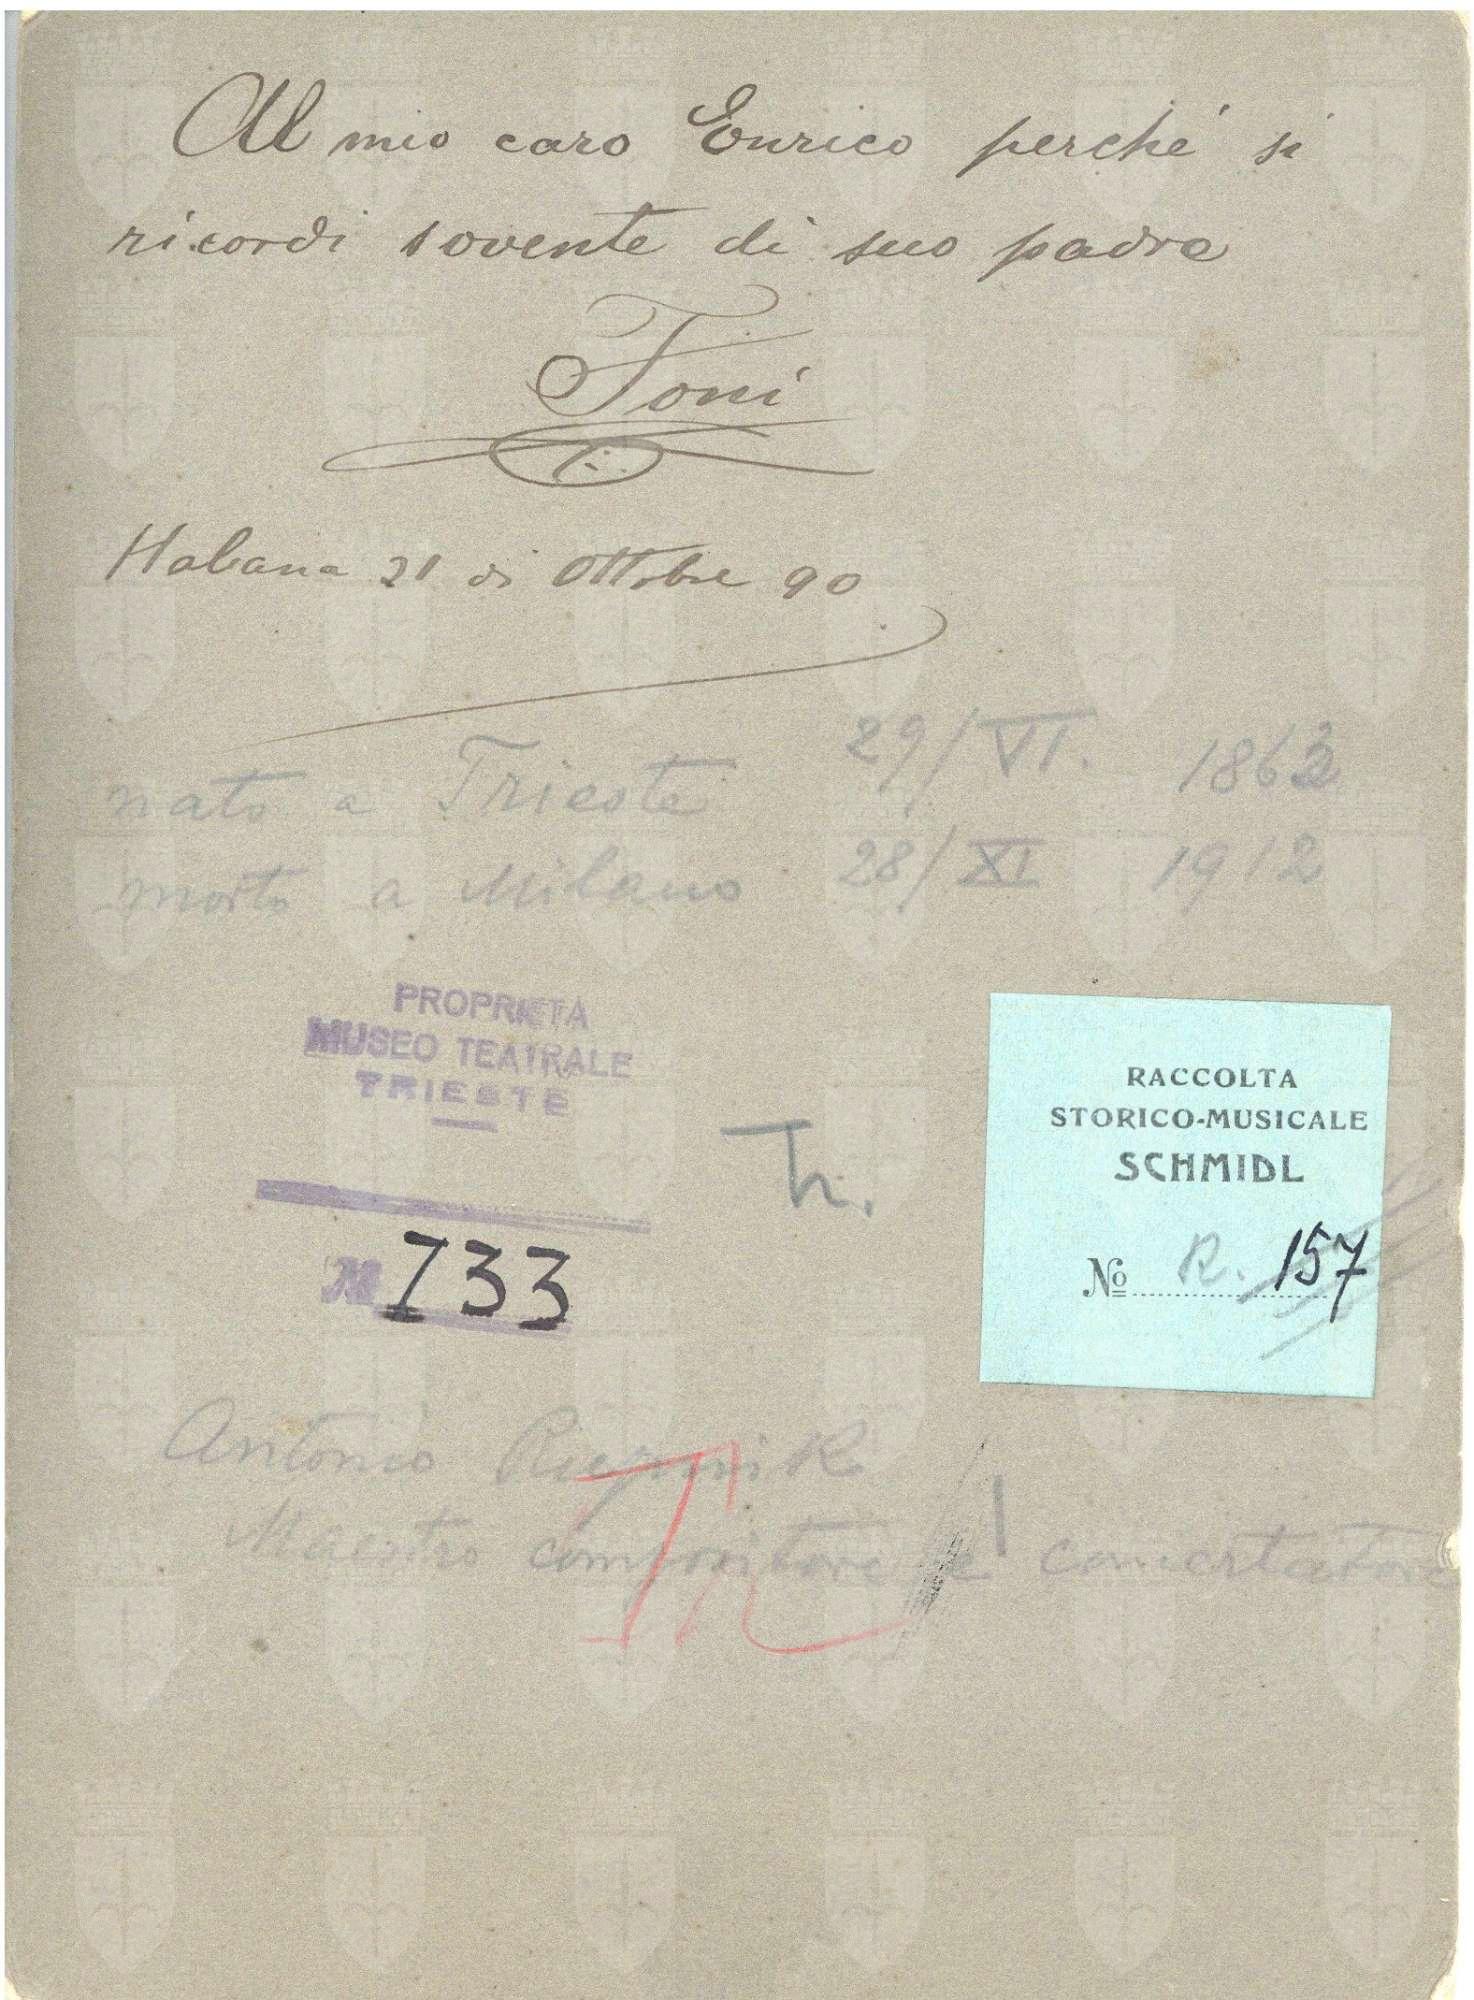 Al mio caro Enrico perché si
ricordi sovente di suo padre
Toni
Habana 21 di Ottobre 90
nato a Trieste 29/VI. 1862
morto a Milano 28/XI 1912
PROPRIETÀ
MUSEO TEATRALE
TRIESTE
Tr.
RACCOLTA
STORICO-MUSICALE
SCHMIDL
No R. 157
N 733
Antonio
Maestro compositore e concertatore